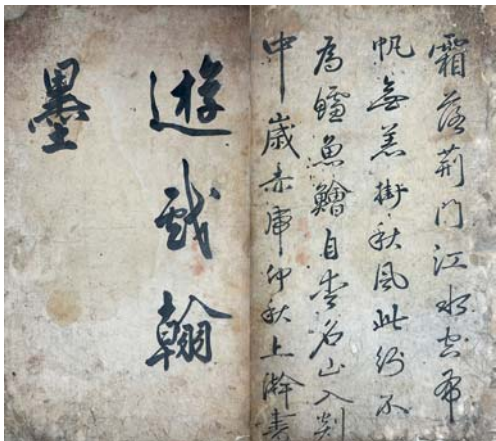 霜落荆门江水空布
帆無恙掛秋風此行不
為鱸魚鱠自愛名山入剡
中歲赤庚仲秋上澣書
遊戲翰
墨